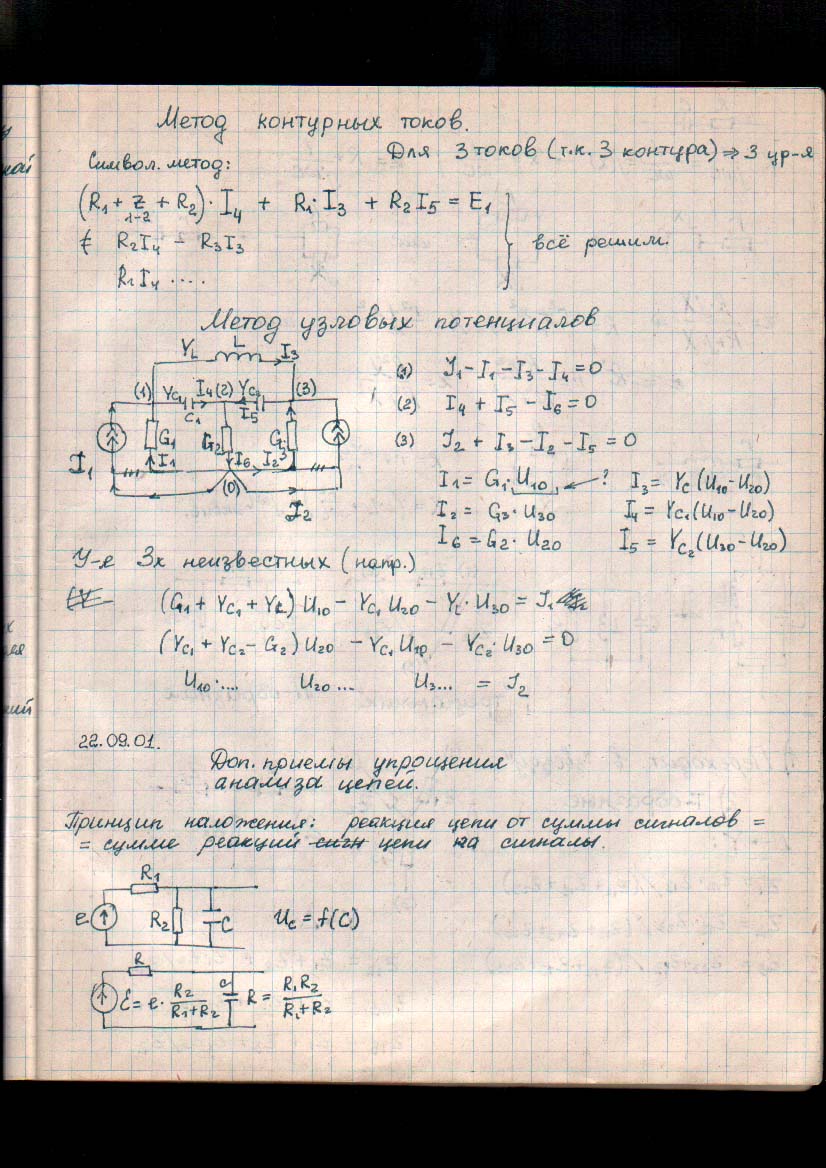 Метод контурных токов.
Для 3 токов (т.к. 3 контура) ⇒ 3 ур-я
Символ. метод:
(R₁ + Z₁₋₂ + R₂)·I₄ + R₁·I₃ + R₂I₅ = E₁
R₂I₄ - R₃I₃
R₁I₄ ....
всё решим.
Метод узловых потенциалов
Y_L L I₃
(1) Y_C₁ I₄ (2) Y_C₂ (3)
C₁ I₅
G₁ G₂ G₃
I₁ I₁ I₆ I₂
(0)
I₂
(1) J₁-I₁-I₃-I₄=0
(2) I₄ + I₅ - I₆ = 0
(3) J₂ + I₃ - I₂ - I₅ = 0
I₁ = G₁·U₁₀ ? I₃ = Y_C(U₁₀-U₂₀)
I₂ = G₃·U₃₀ I₄ = Y_C₁(U₁₀-U₂₀)
I₆ = G₂·U₂₀ I₅ = Y_C₂(U₃₀-U₂₀)
У-е 3х неизвестных (напр.)
(G₁ + Y_C₁ + Y_L)U₁₀ - Y_C₁U₂₀ - Y_L·U₃₀ = J₁
(Y_C₁ + Y_C₂ - G₂)U₂₀ - Y_C₁U₁₀ - Y_C₂·U₃₀ = 0
U₁₀·.... U₂₀ ... U₃... = J₂
22.09.01.
Доп. приемы упрощения
анализа цепей.
Принцип наложения: реакция цепи от суммы сигналов =
= сумме реакций сигн цепи на сигналы.
R₁
e R₂ C U_C = f(C)
R
Ɛ = e · R₂/(R₁+R₂) C R = R₁R₂/(R₁+R₂)